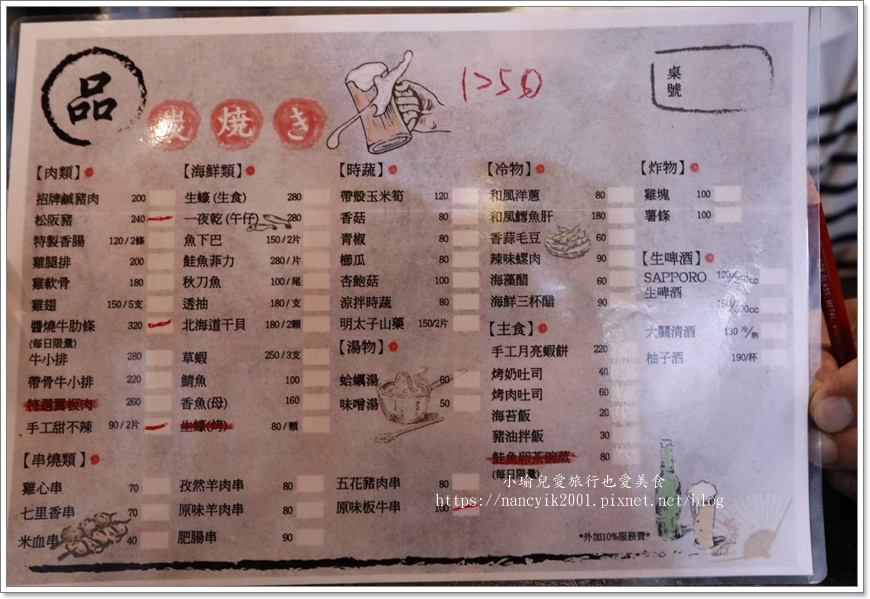 品
炭燒き
1250
桌號
【肉類】
招牌鹹豬肉 200
松阪豬 240
特製香腸 120/2條
雞腿排 200
雞軟骨 180
雞翅 150/5支
醬燒牛肋條 320
(每日限量)
牛小排 280
帶骨牛小排 220
特選翼板肉 260
手工甜不辣 90/2片
【海鮮類】
生蠔(生食) 280
一夜乾(午仔) 280
魚下巴 150/2片
鮭魚菲力 280/片
秋刀魚 100/尾
透抽 180/支
北海道干貝 180/2顆
草蝦 250/3支
鯖魚 100
香魚(母) 160
生蠔(烤) 80/顆
【時蔬】
帶殼玉米筍 120
香菇 80
青椒 80
櫛瓜 80
杏鮑菇 100
涼拌時蔬 80
明太子山藥 150/2片
【湯物】
蛤蠣湯 60
味噌湯 50
【冷物】
和風洋蔥 80
和風鱈魚肝 180
香蒜毛豆 60
辣味螺肉 90
海藻醋 60
海鮮三杯醋 90
【主食】
手工月亮蝦餅 220
烤奶吐司 40
烤肉吐司 60
海苔飯 20
豬油拌飯 30
鮭魚卵茶碗蒸 80
(每日限量)
【炸物】
雞塊 100
薯條 100
【生啤酒】
SAPPORO
生啤酒
大關清酒 130 冷/熱
柚子酒 190/杯
【串燒類】
雞心串 70
七里香串 70
米血串 40
孜然羊肉串 80
原味羊肉串 80
肥腸串 90
五花豬肉串 80
原味板牛串 100
*外加10%服務費*
小瑜兒愛旅行也愛美食
https://nancyik2001.pixnet.net/blog